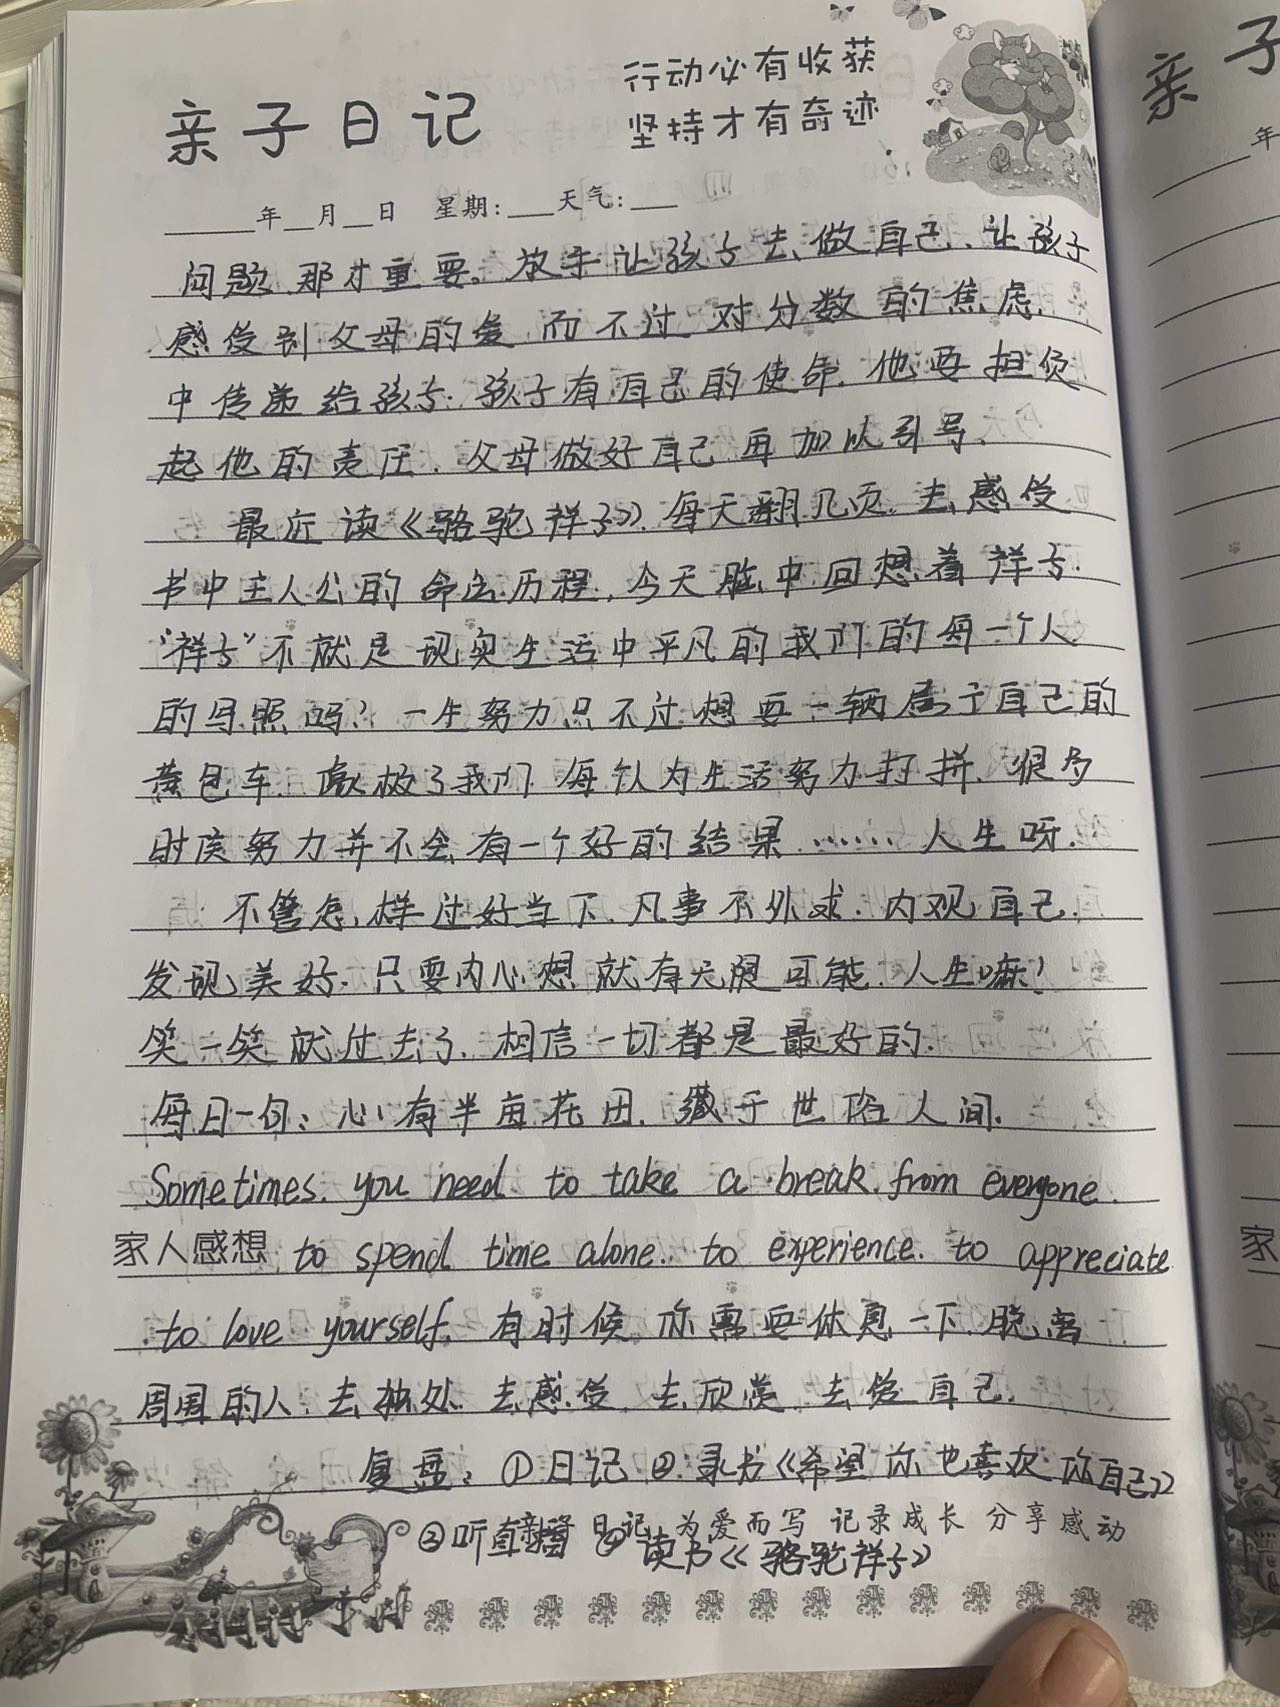 行动必有收获
亲子日记
坚持才有奇迹
年 月 日 星期: 天气:
问题,那才重要。放手让孩子去做自己,让孩子
感受到父母的爱,而不过对分数的焦虑,
中传递给孩子.孩子有自己的使命.他要担负
起他的责任.父母做好自己再加以引导.
最近读《骆驼祥子》.每天翻几页.去感受
书中主人公的命运历程.今天脑中回想着祥子.
"祥子"不就是现实生活中平凡的我们的每一个人
的写照吗?一生努力只不过想要一辆属于自己的
黄包车.像极了我们.每个人为生活努力打拼.很多
时候努力并不会有一个好的结果……人生呀.
不管怎样过好当下.凡事不外求.内观自己.
发现美好.只要内心想就有无限可能.人生嘛!
笑一笑就过去了.相信一切都是最好的.
每日一句:心有半亩花田.藏于世俗人间.
Sometimes. you need to take a break from everyone.
家人感想 to spend time alone. to experience. to appreciate
to love yourself. 有时候你需要休息一下.脱离
周围的人.去独处.去感受.去欣赏.去爱自己.
复盘:①日记 ②录书《希望你也喜欢你自己》
亲子日记 为爱而写 记录成长 分享感动
③听直播 ④读书《骆驼祥子》
亲子
年
家